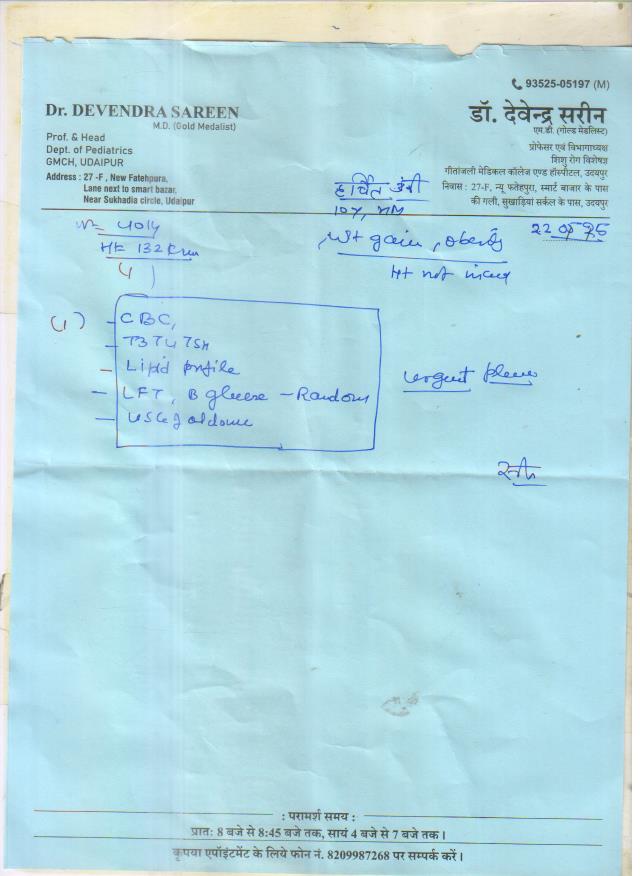 📞 93525-05197 (M)
Dr. DEVENDRA SAREEN
M.D. (Gold Medalist)
Prof. & Head
Dept. of Pediatrics
GMCH, UDAIPUR
Address : 27 -F , New Fatehpura,
Lane next to smart bazar,
Near Sukhadia circle, Udaipur
डॉ. देवेन्द्र सरीन
एम.डी. (गोल्ड मेडलिस्ट)
प्रोफेसर एवं विभागाध्यक्ष
शिशु रोग विशेषज्ञ
गीतांजली मेडिकल कॉलेज एण्ड हॉस्पीटल, उदयपुर
निवास : 27-F, न्यू फतेहपुरा, स्मार्ट बाजार के पास
की गली, सुखाड़िया सर्कल के पास, उदयपुर
हर्षित
10 Y,
22
Ht= 132
wt gain, obesity
Ht not
CBC,
T3 T4 TSH
Lipid profile
LFT, B glucose - Random
USG
urgent please
: परामर्श समय :
प्रात: 8 बजे से 8:45 बजे तक, सायं 4 बजे से 7 बजे तक ।
कृपया एपॉइंटमेंट के लिये फोन नं. 8209987268 पर सम्पर्क करें ।